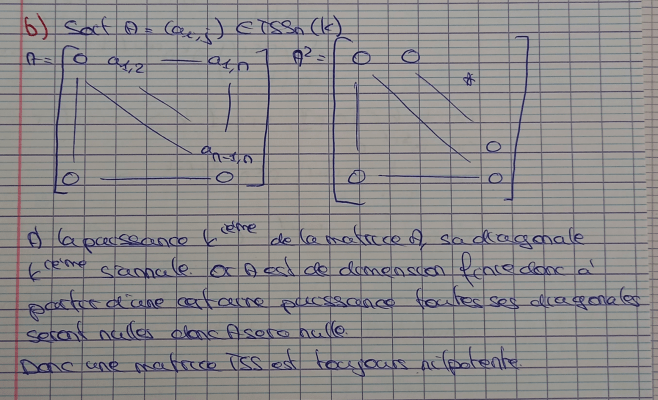 b) Soit A = (ai,j) ∈ TSSn(k)
A = [ 0 a1,2 — a1,n A² = [ 0 0
*
an-1,n 0
0 — 0 ] 0 — 0 ]
A la puissance k ième de la matrice A, sa diagonale
k ième s'annule. Or A est de dimension finie donc à
partir d'une certaine puissance toutes ses diagonales
seront nulles donc A sera nulle.
Donc une matrice TSS est toujours nilpotente.